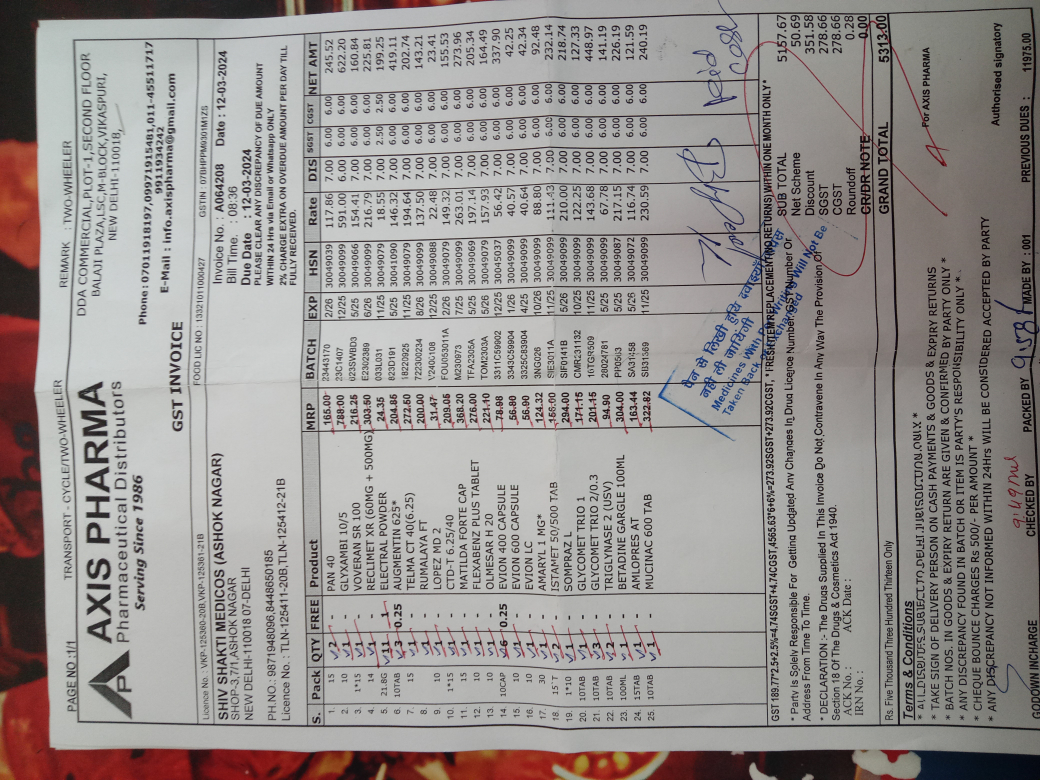 PAGE NO :1/1 TRANSPORT - CYCLE/TWO-WHEELER REMARK : TWO-WHEELER
AXIS PHARMA
Pharmaceutical Distributors
Serving Since 1986
DDA COMMERCIAL,PLOT-1,SECOND FLOOR
BALAJI PLAZA,LSC,M-BLOCK,VIKASPURI,
NEW DELHI-110018,
Phone : 07011918197,09971915481,011-45511717
9911934242
E-Mail : info.axispharma@gmail.com
GST INVOICE
Licence No. : VKP-125360-20B,VKP-125361-21B FOOD LIC NO : 13321011000427 GSTIN : 07BHRPM9001M1ZS
SHIV SHAKTI MEDICOS (ASHOK NAGAR)
SHOP-3,7/1,ASHOK NAGAR
NEW DELHI-110018 07-DELHI
PH.NO.: 9871948096,8448650185
Licence No. : TLN-125411-20B,TLN-125412-21B
Invoice No. : A064208 Date : 12-03-2024
Bill Time. : 08:36
Due Date : 12-03-2024
PLEASE CLEAR ANY DISCREPANCY OF DUE AMOUNT
WITHIN 24 Hrs via Email or Whatsapp ONLY
2% CHARGE EXTRA ON OVERDUE AMOUNT PER DAY TILL
FULLY RECEIVED.
S. Pack QTY FREE Product MRP BATCH EXP HSN Rate DIS SGST CGST NET AMT
1. 15 2 - PAN 40 165.00 23443170 2/26 30049039 117.86 7.00 6.00 6.00 245.52
2. 10 1 - GLYXAMBI 10/5 788.00 23C1407 12/25 30049099 591.00 6.00 6.00 622.20
3. 1*15 1 - VOVERAN SR 100 216.25 023SWBD3 5/26 30049066 154.41 7.00 6.00 6.00 160.84
4. 14 1 - RECLIMET XR (60MG + 500MG) 303.50 E2302389 6/26 30049099 216.79 7.00 6.00 6.00 225.81
5. 21.8G 11 1 ELECTRAL POWDER 24.35 11/25 30049079 18.55 7.00 2.50 2.50 199.25
6. 10TAB 3 0.25 AUGMENTIN 625* 204.86 823D191 5/25 30041090 146.32 7.00 6.00 6.00 419.11
7. 15 1 - TELMA CT 40(6.25) 272.50 18220925 11/25 30049079 194.64 7.00 6.00 6.00 202.74
8. 1 - RUMALAYA FT 200.00 72200234 8/26 30049099 137.50 7.00 6.00 6.00 143.21
9. 10 1 - LOPEZ MD 2 31.47 12/25 30049088 22.48 7.00 6.00 6.00 23.41
10. 1*15 1 - CTD-T 6.25/40 209.05 FOU053011A 2/26 30049079 149.32 7.00 6.00 6.00 155.53
11. 15 1 - MATILDA FORTE CAP 368.20 M230973 7/25 30049099 263.01 7.00 6.00 6.00 273.96
12. 10 1 - FLEXABENZ PLUS TABLET 276.00 TFA2305A 5/26 30049069 197.14 7.00 6.00 6.00 205.34
13. 10 1 - OLMESAR H 20 221.10 TOM2303A 5/26 30049079 157.93 7.00 6.00 6.00 164.49
14. 10CAP 6 0.25 EVION 400 CAPSULE 78.98 3311C59902 12/25 30045037 56.42 7.00 6.00 6.00 337.90
15. 10 1 - EVION 600 CAPSULE 56.80 3343C59904 1/26 30049099 40.57 7.00 6.00 6.00 42.25
16. 10 1 - EVION LC 56.90 3325C83904 4/25 30049099 40.64 7.00 6.00 6.00 42.34
17. 30 1 - AMARYL 1 MG* 124.32 3NG026 10/26 30049099 88.80 7.00 6.00 6.00 92.48
18. 15'T 2 - ISTAMET 50/500 TAB SIE3011A 11/25 30049099 111.43 7.00 6.00 6.00 232.14
19. 1*10 1 - SOMPRAZ L 294.00 SIF0141B 5/26 30049099 210.00 7.00 6.00 6.00 218.74
20. 10TAB 1 - GLYCOMET TRIO 1 171.15 CME231132 10/25 30049099 122.25 7.00 6.00 6.00 127.33
21. 10TAB 3 - GLYCOMET TRIO 2/0.3 201.15 10TGR509 11/25 30049099 143.68 7.00 6.00 6.00 448.97
22. 10TAB 2 - TRIGLYNASE 2 (USV) 94.90 28024781 5/25 30049099 67.78 7.00 6.00 6.00 141.19
23. 100ML 1 - BETADINE GARGLE 100ML 304.00 30049087 217.15 7.00 6.00 6.00 226.19
24. 15TAB 1 - AMLOPRES AT 163.44 SA31458 5/26 30049072 116.74 7.00 6.00 6.00 121.59
25. 10TAB 1 - MUCINAC 600 TAB 322.82 SI31369 11/25 30049099 230.59 7.00 6.00 6.00 240.19
पैन से लिखी हुई दवाईयां वापस
नहीं ली जायेंगी
Medicines With Pen Writing Will Not Be
Taken Back Or Exchanged
Paid
GST 189.77*2.5+2.5%=4.74SGST+4.74CGST,4565.63*6+6%=273.92SGST+273.92CGST, *FRESH ITEM REPLACEMENT(NO RETURNS) WITHIN ONE MONTH ONLY*
* Party Is Solely Responsible For Getting Updated Any Changes In Drug Licence Number, GST Number Or
Address From Time To Time.
* DECLARATION :- The Drugs Supplied In This Invoice Do Not Contravene In Any Way The Provision Of
Section 18 Of The Drugs & Cosmetics Act 1940.
ACK No. : ACK Date :
IRN No. :
SUB TOTAL 5157.67
Net Scheme 50.69
Discount 351.58
SGST 278.66
CGST 278.66
Roundoff 0.28
CR/DR NOTE 0.00
GRAND TOTAL 5313.00
Rs. Five Thousand Three Hundred Thirteen Only
Terms & Conditions
* ALL DISPUTES SUBJECT TO DELHI JURISDICTION ONLY.*
* TAKE SIGN OF DELIVERY PERSON ON CASH PAYMENTS & GOODS & EXPIRY RETURNS
* BATCH NOS. IN GOODS & EXPIRY RETURN ARE GIVEN & CONFIRMED BY PARTY ONLY *
* ANY DISCREPANCY FOUND IN BATCH OR ITEM IS PARTY'S RESPONSIBILITY ONLY *
* CHEQUE BOUNCE CHARGES Rs 500/- PER AMOUNT *
* ANY DISCREPANCY NOT INFORMED WITHIN 24Hrs WILL BE CONSIDERED ACCEPTED BY PARTY
For AXIS PHARMA
Authorised signatory
GODOWN INCHARGE CHECKED BY PACKED BY MADE BY : 001 PREVIOUS DUES : 11975.00